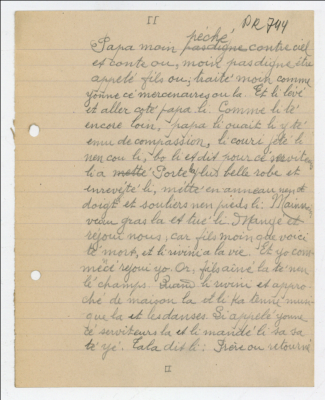 II
PR 744
péché
Papa moin pasdigne contre ciel
et conte ou, moin pasdigne être
appelé fils ou, traité moin comme
younne cé mercenaires ou la. Et li lévé
et aller coté papa li. Comme li té
encore loin, papa li ouait li y té
emu de compassion, li couri jété li
nen cou li, bo li et dit pour cé serviteurs
li a mette Porté plus belle robe et
enrevité li, mette en anneau nen
doigt et souliers nen pieds li. Mainnin
veau gras la et tué li. Mangé et
réjoui nous, car fils moin que voici
té mort, et li rivini a la vie. Et yo com-
mencé rejoui yo. Or, fils ainé la té nen
lé champs. Quand li rivini et appro-
ché de maison la et li ka tenne musi-
que la et les danses. Li appelé younne
cé serviteurs la et li mandé li sa sa
té yé. Tala dit li: Frère ou retourné
II